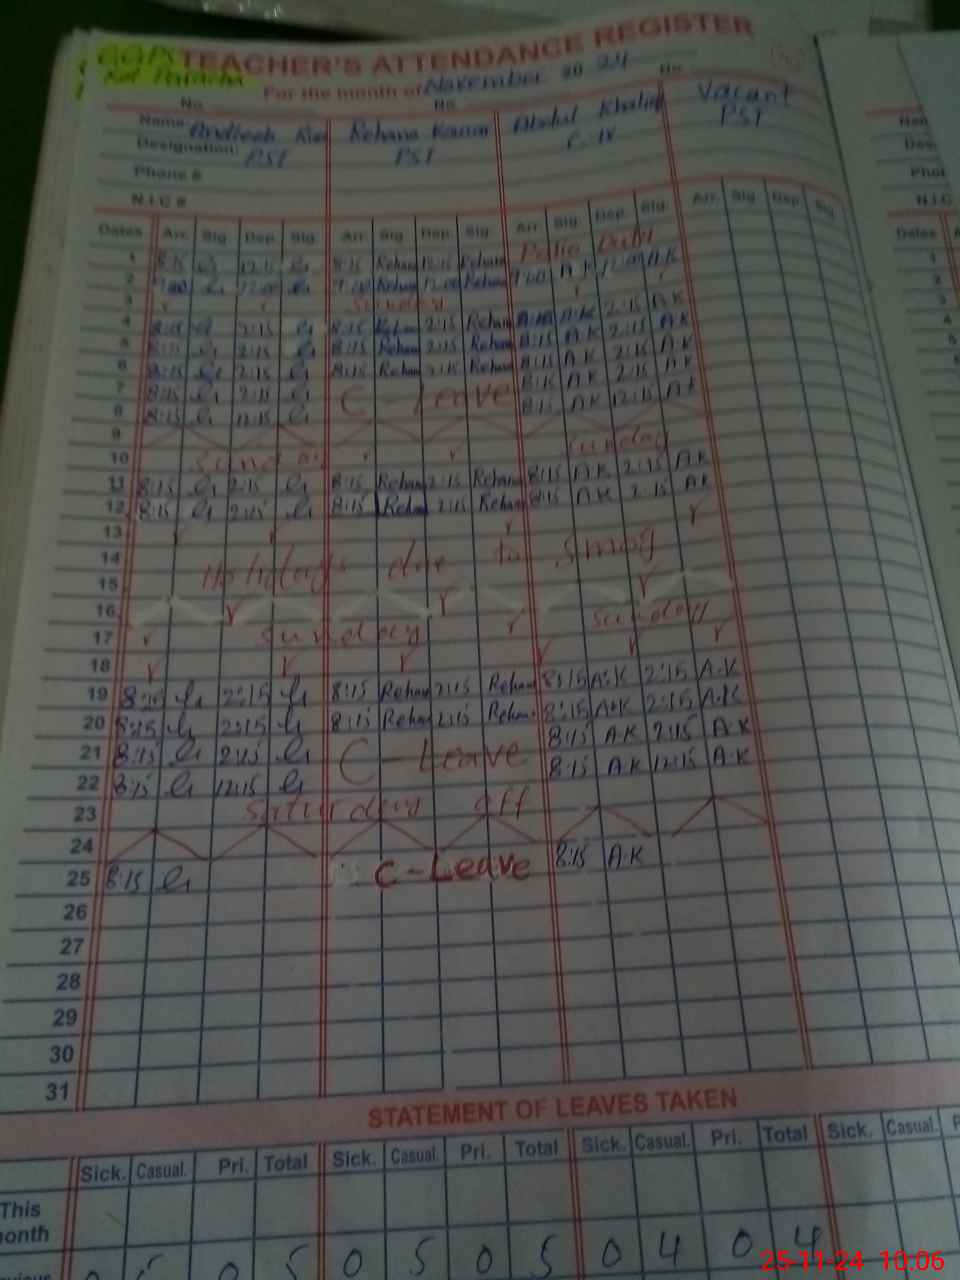 TEACHER'S ATTENDANCE REGISTER
For the month of November 20 24
No. No. No.
Name: Rehana Abdul Khaliq Vacant
Designation: PST PST C-IV PST
Phone #
N.I.C #
Dates Arr. Sig. Dep. Sig. Arr. Sig. Dep. Sig. Arr. Sig. Dep. Sig. Arr. Sig. Dep. Sig.
1 8:15 12:15 8:15 Rehana 12:15 Rehana Polio Duty
2 9:00 12:00 9:00 Rehana 12:00 Rehana 9:00 A.K 12:00 A.K
3 Sunday
4 8:15 2:15 8:15 Rehana 2:15 Rehana A.K 2:15 A.K
5 8:15 2:15 8:15 Rehana 2:15 Rehana 8:15 A.K 2:15 A.K
6 8:15 2:15 8:15 Rehana 2:15 Rehana 8:15 A.K 2:15 A.K
7 8:15 2:15 C-Leave 8:15 A.K 2:15 A.K
8 8:15 12:15 8:15 A.K 12:15 A.K
9
10 Sunday Sunday
11 8:15 2:15 8:15 Rehana 2:15 Rehana 8:15 A.K 2:15 A.K
12 8:15 2:15 8:15 Reha 2:15 Rehana 8:15 A.K 2:15 A.K
13
14 Holidays due to Smog
15
16
17 Sunday Sunday
18
19 8:15 2:15 8:15 Rehana 2:15 Rehana 8:15 A.K 2:15 A.K
20 8:15 2:15 8:15 Rehana 2:15 Rehana 8:15 A.K 2:15 A.K
21 8:15 2:15 C-Leave 8:15 A.K 2:15 A.K
22 8:15 12:15 8:15 A.K 12:15 A.K
23 Saturday off
24
25 8:15 C-Leave 8:15 A.K
26
27
28
29
30
31
STATEMENT OF LEAVES TAKEN
Sick. Casual. Pri. Total Sick. Casual. Pri. Total Sick. Casual. Pri. Total Sick. Casual.
This
onth
0 5 0 5 0 5 0 5 0 4 0 4
25-11-24 10:06